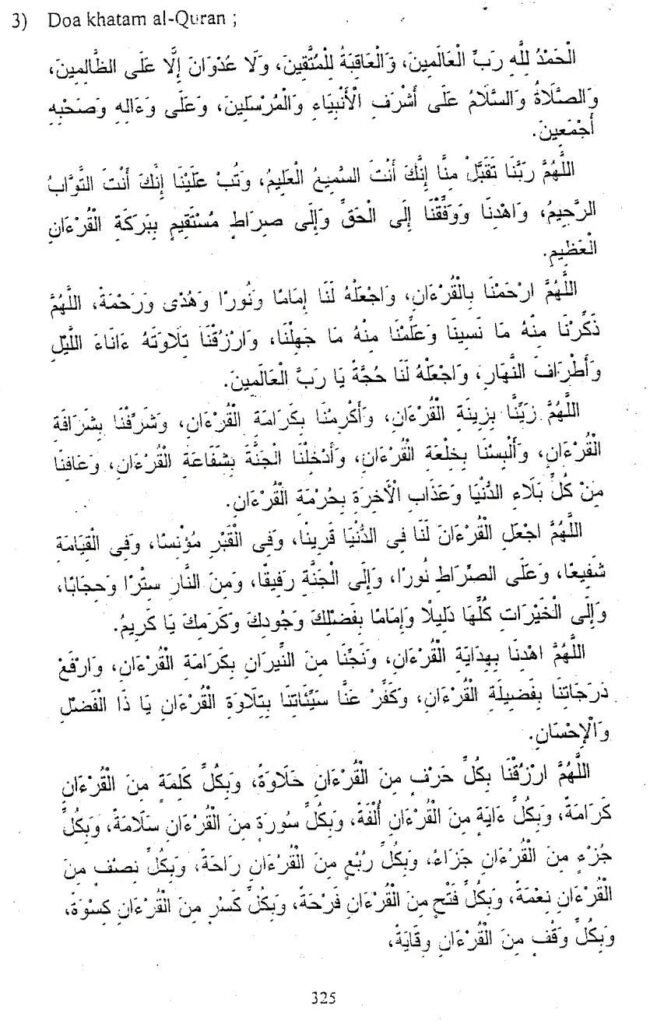 3) Doa khatam al-Quran ;
الْحَمْدُ لِلَّهِ رَبِّ الْعَالَمِينَ، وَالْعَاقِبَةُ لِلْمُتَّقِينَ، وَلَا عُدْوَانَ إِلَّا عَلَى الظَّالِمِينَ،
وَالصَّلَاةُ وَالسَّلَامُ عَلَى أَشْرَفِ الْأَنْبِيَاءِ وَالْمُرْسَلِينَ، وَعَلَى وَءَالِهِ وَصَحْبِهِ
أَجْمَعِينَ.
اللَّهُمَّ رَبَّنَا تَقَبَّلْ مِنَّا إِنَّكَ أَنْتَ السَّمِيعُ الْعَلِيمُ، وَتُبْ عَلَيْنَا إِنَّكَ أَنْتَ التَّوَّابُ
الرَّحِيمُ، وَاهْدِنَا وَوَفِّقْنَا إِلَى الْحَقِّ وَإِلَى صِرَاطٍ مُسْتَقِيمٍ بِبَرَكَةِ الْقُرْءَانِ
الْعَظِيمِ.
اللَّهُمَّ ارْحَمْنَا بِالْقُرْءَانِ، وَاجْعَلْهُ لَنَا إِمَامًا وَنُورًا وَهُدًى وَرَحْمَةً، اللَّهُمَّ
ذَكِّرْنَا مِنْهُ مَا نَسِينَا وَعَلِّمْنَا مِنْهُ مَا جَهِلْنَا، وَارْزُقْنَا تِلَاوَتَهُ ءَانَاءَ اللَّيْلِ
وَأَطْرَافَ النَّهَارِ، وَاجْعَلْهُ لَنَا حُجَّةً يَا رَبَّ الْعَالَمِينَ.
اللَّهُمَّ زَيِّنَّا بِزِينَةِ الْقُرْءَانِ، وَأَكْرِمْنَا بِكَرَامَةِ الْقُرْءَانِ، وَشَرِّفْنَا بِشَرَافَةِ
الْقُرْءَانِ، وَأَلْبِسْنَا بِخِلْعَةِ الْقُرْءَانِ، وَأَدْخِلْنَا الْجَنَّةَ بِشَفَاعَةِ الْقُرْءَانِ، وَعَافِنَا
مِنْ كُلِّ بَلَاءِ الدُّنْيَا وَعَذَابِ الْأَخِرَةِ بِحُرْمَةِ الْقُرْءَانِ.
اللَّهُمَّ اجْعَلِ الْقُرْءَانَ لَنَا فِى الدُّنْيَا قَرِينًا، وَفِى الْقَبْرِ مُؤْنِسًا، وَفِى الْقِيَامَةِ
شَفِيعًا، وَعَلَى الصِّرَاطِ نُورًا، وَإِلَى الْجَنَّةِ رَفِيقًا، وَمِنَ النَّارِ سِتْرًا وَحِجَابًا،
وَإِلَى الْخَيْرَاتِ كُلِّهَا دَلِيلًا وَإِمَامًا بِفَضْلِكَ وَجُودِكَ وَكَرَمِكَ يَا كَرِيمُ.
اللَّهُمَّ اهْدِنَا بِهِدَايَةِ الْقُرْءَانِ، وَنَجِّنَا مِنَ النِّيرَانِ بِكَرَامَةِ الْقُرْءَانِ، وَارْفَعْ
دَرَجَاتِنَا بِفَضِيلَةِ الْقُرْءَانِ، وَكَفِّرْ عَنَّا سَيِّئَاتِنَا بِتِلَاوَةِ الْقُرْءَانِ يَا ذَا الْفَضْلِ
وَالْإِحْسَانِ.
اللَّهُمَّ ارْزُقْنَا بِكُلِّ حَرْفٍ مِنَ الْقُرْءَانِ حَلَاوَةً، وَبِكُلِّ كَلِمَةٍ مِنَ الْقُرْءَانِ
كَرَامَةً، وَبِكُلِّ ءَايَةٍ مِنَ الْقُرْءَانِ أُلْفَةً، وَبِكُلِّ سُورَةٍ مِنَ الْقُرْءَانِ سَلَامَةً، وَبِكُلِّ
جُزْءٍ مِنَ الْقُرْءَانِ جَزَاءً، وَبِكُلِّ رُبُعٍ مِنَ الْقُرْءَانِ رَاحَةً، وَبِكُلِّ نِصْفٍ مِنَ
الْقُرْءَانِ نِعْمَةً، وَبِكُلِّ فَتْحٍ مِنَ الْقُرْءَانِ فَرْحَةً، وَبِكُلِّ كَسْرٍ مِنَ الْقُرْءَانِ كِسْوَةً،
وَبِكُلِّ وَقْفٍ مِنَ الْقُرْءَانِ وِقَايَةً،
325